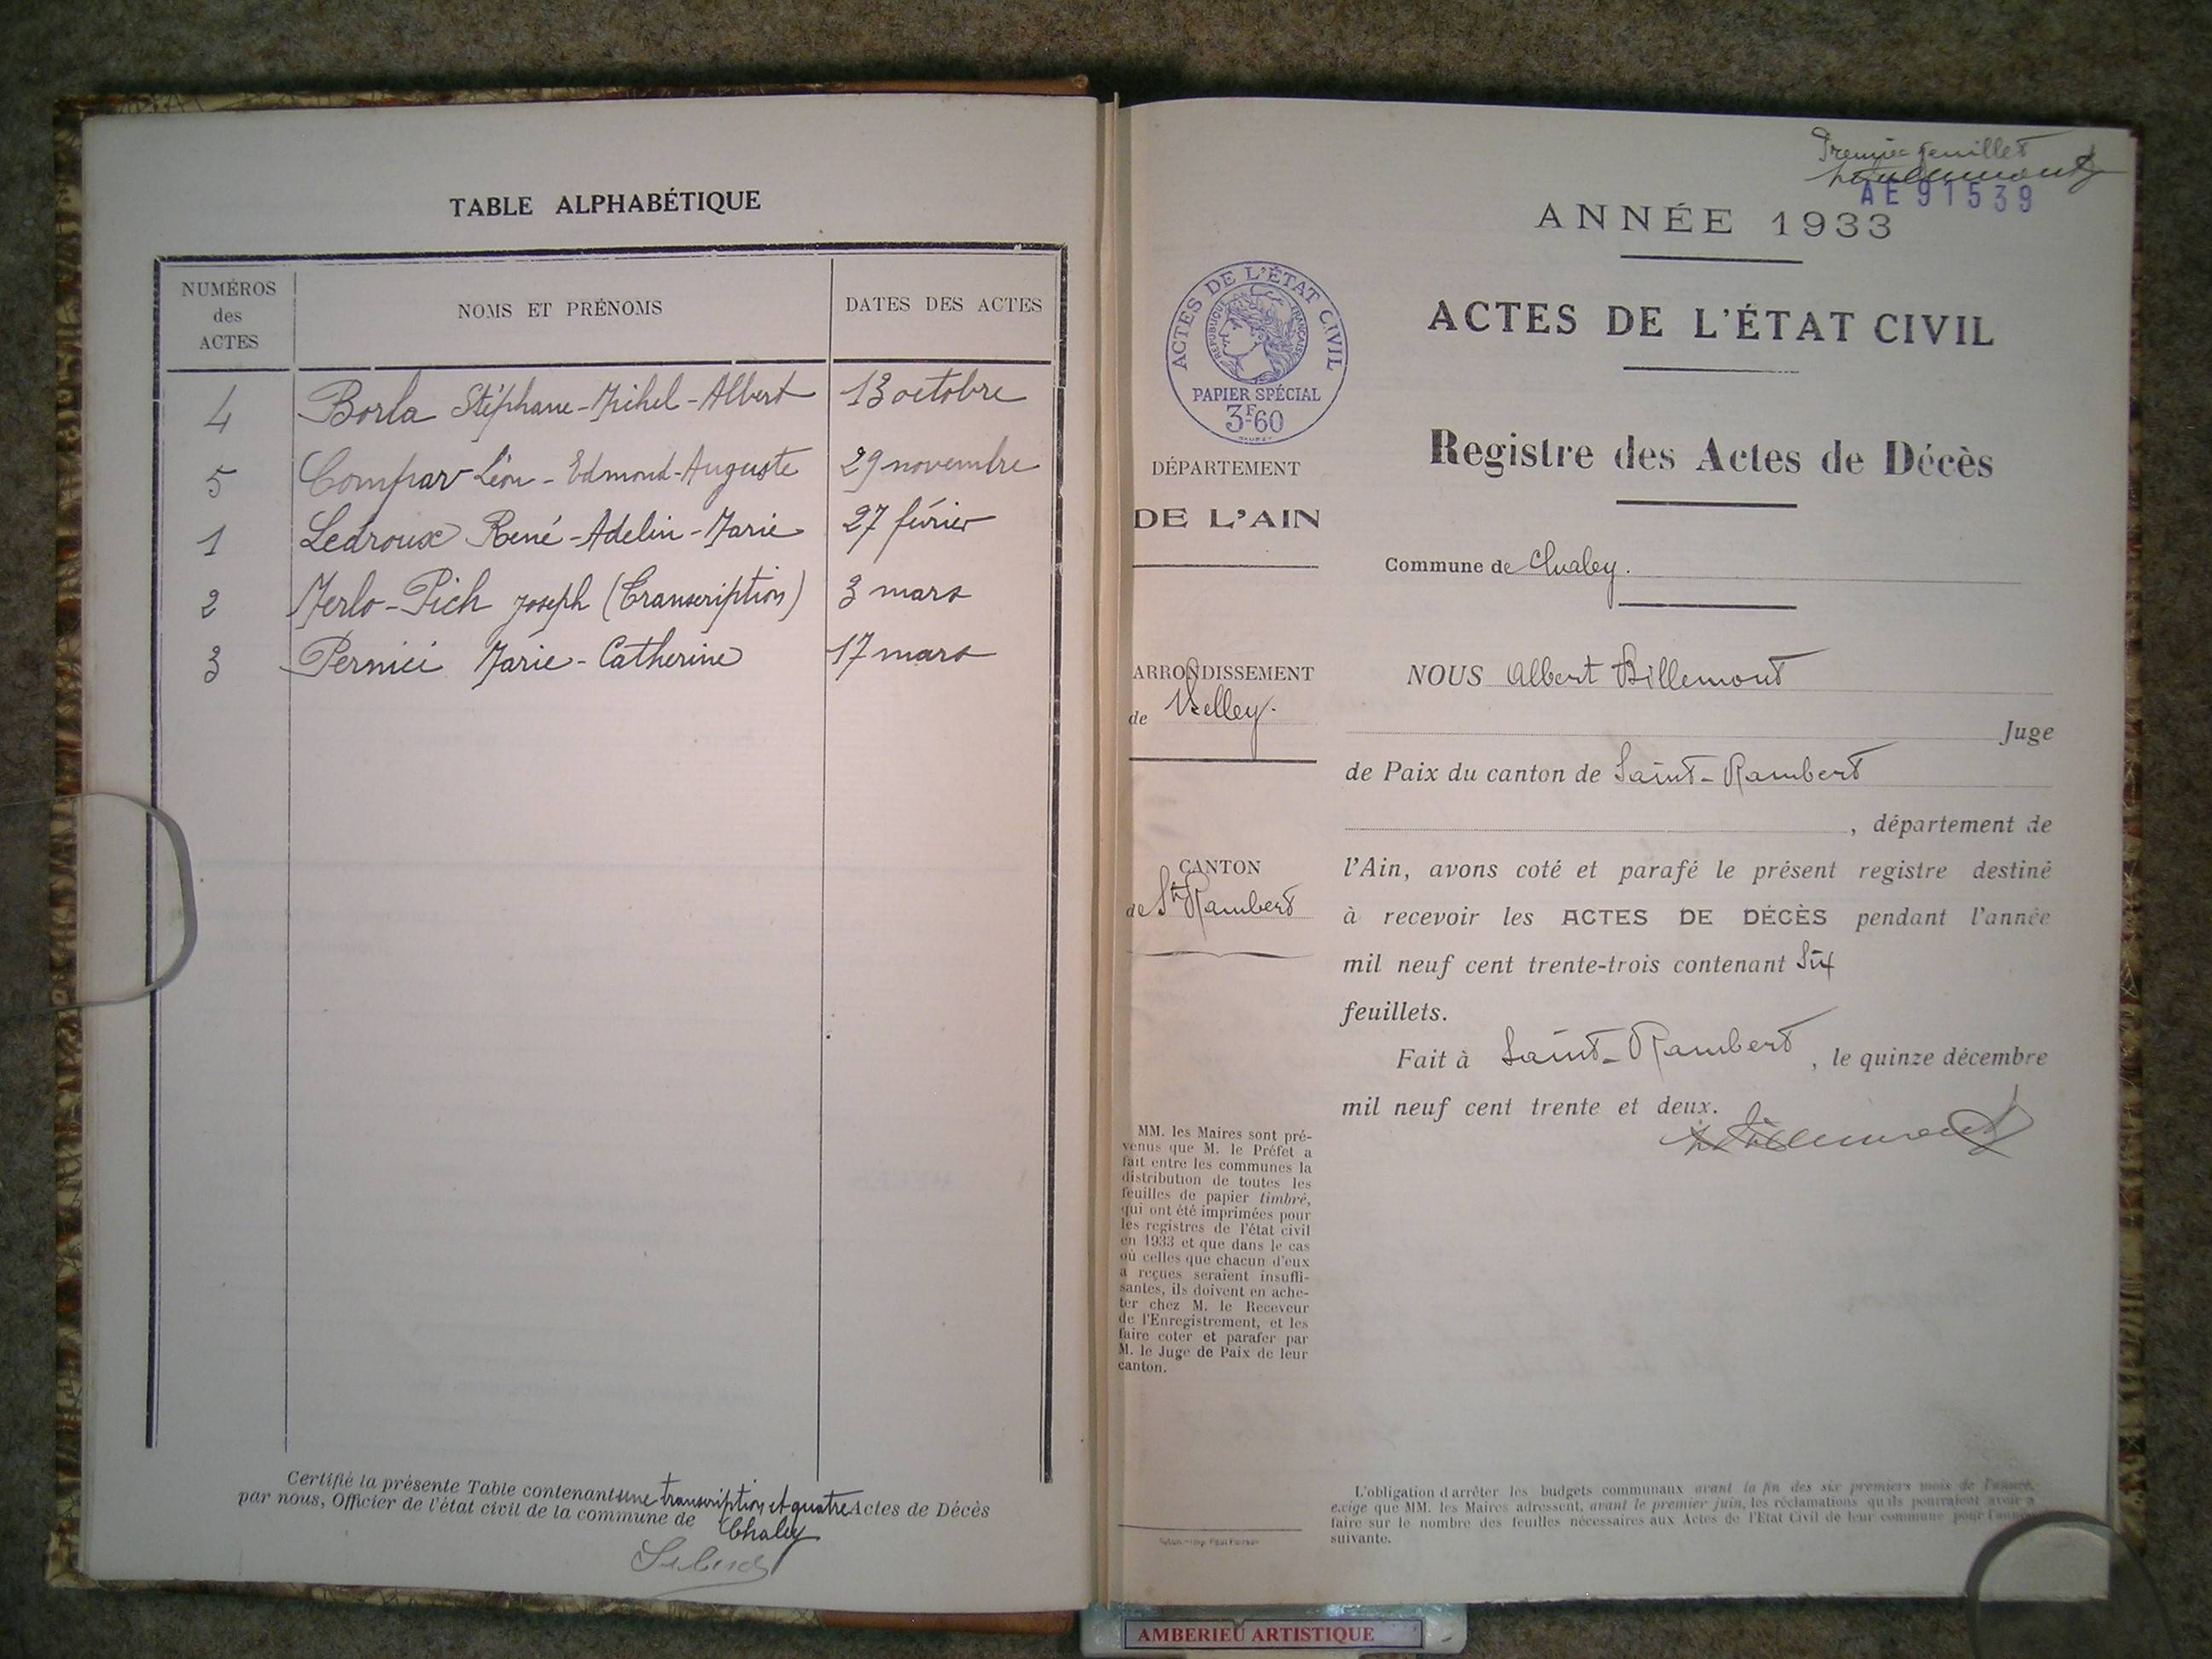 TABLE ALPHABÉTIQUE
NUMÉROS
des
ACTES
NOMS ET PRÉNOMS
DATES DES ACTES
4 Borla Stéphane-Michel-Albert 13 octobre
5 Compar Léon-Edmond-Auguste 29 novembre
1 Ledroux René-Adelin-Marie 27 février
2 Merlo-Pich Joseph (Transcription) 3 mars
3 Pernici Marie-Catherine 17 mars
Certifié la présente Table contenant une transcription et quatre Actes de Décès
par nous, Officier de l'état civil de la commune de Chaley
Premier feuillet
AE 91539
ANNÉE 1933
ACTES DE L'ÉTAT CIVIL
PAPIER SPÉCIAL
3F60
RÉPUBLIQUE FRANÇAISE
ACTES DE L'ÉTAT CIVIL
Registre des Actes de Décès
DÉPARTEMENT
DE L'AIN
Commune de Chaley.
ARRONDISSEMENT
de Belley.
CANTON
de St Rambert
NOUS Albert Billemont
Juge
de Paix du canton de Saint-Rambert
, département de
l'Ain, avons coté et parafé le présent registre destiné
à recevoir les ACTES DE DÉCÈS pendant l'année
mil neuf cent trente-trois contenant Six
feuillets.
Fait à Saint-Rambert, le quinze décembre
mil neuf cent trente et deux.
MM. les Maires sont pré-
venus que M. le Préfet a
fait entre les communes la
distribution de toutes les
feuilles de papier timbré,
qui ont été imprimées pour
les registres de l'état civil
en 1933 et que dans le cas
où celles que chacun d'eux
a reçues seraient insuffi-
santes, ils doivent en ache-
ter chez M. le Receveur
de l'Enregistrement, et les
faire coter et parafer par
M. le Juge de Paix de leur
canton.
L'obligation d'arrêter les budgets communaux avant la fin des six premiers mois de l'année,
exige que MM. les Maires adressent, avant le premier juin, les réclamations qu'ils pourraient avoir à
faire sur le nombre des feuilles nécessaires aux Actes de l'Etat Civil de leur commune pour l'année
suivante.
AMBERIEU ARTISTIQUE